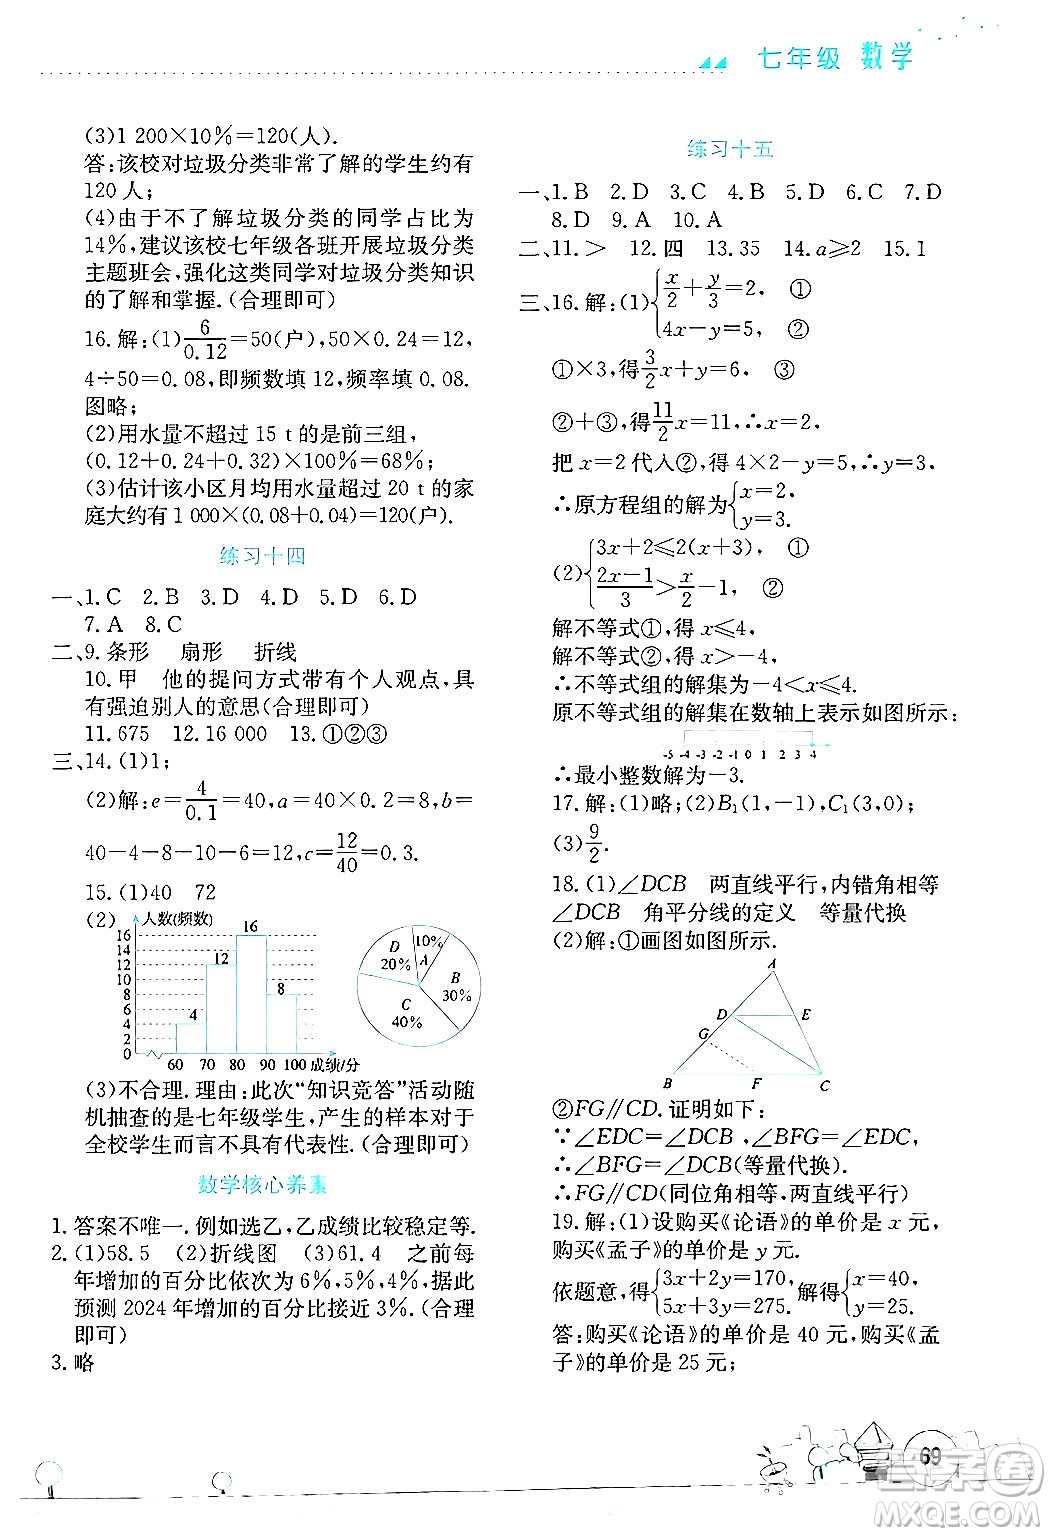 七年级 数学
(3)1 200×10%=120(人).
答:该校对垃圾分类非常了解的学生约有
120 人;
(4)由于不了解垃圾分类的同学占比为
14%,建议该校七年级各班开展垃圾分类
主题班会,强化这类同学对垃圾分类知识
的了解和掌握.(合理即可)
16.解:(1)6/0.12=50(户),50×0.24=12,
4÷50=0.08,即频数填 12,频率填 0.08.
图略;
(2)用水量不超过 15 t的是前三组,
(0.12+0.24+0.32)×100%=68%;
(3)估计该小区月均用水量超过 20 t 的家
庭大约有 1 000×(0.08+0.04)=120(户).
练习十四
一、1.C 2.B 3.D 4.D 5.D 6.D
7.A 8.C
二、9.条形 扇形 折线
10.甲 他的提问方式带有个人观点,具
有强迫别人的意思(合理即可)
11.675 12.16 000 13.①②③
三、14.(1)1;
(2)解:e=4/0.1=40,a=40×0.2=8,b=
40-4-8-10-6=12,c=12/40=0.3.
15.(1)40 72
(2)
人数(频数)
16
14
12
10
8
6
4
2
0
4
12
16
8
60 70 80 90 100 成绩/分
D
20%
10%
A
B
30%
C
40%
(3)不合理.理由:此次“知识竞答”活动随
机抽查的是七年级学生,产生的样本对于
全校学生而言不具有代表性.(合理即可)
数学核心养素
1.答案不唯一.例如选乙,乙成绩比较稳定等.
2.(1)58.5 (2)折线图 (3)61.4 之前每
年增加的百分比依次为 6%,5%,4%,据此
预测 2024 年增加的百分比接近 3%.(合理
即可)
3.略
练习十五
一、1.B 2.D 3.C 4.B 5.D 6.C 7.D
8.D 9.A 10.A
二、11.> 12.四 13.35 14.a≥2 15.1
三、16.解:(1){x/2+y/3=2, ①
4x-y=5, ②
①×3,得3/2x+y=6, ③
②+③,得11/2x=11,∴x=2,
把 x=2 代入②,得 4×2-y=5,∴y=3,
∴原方程组的解为{x=2,
y=3.
(2){3x+2≤2(x+3), ①
(2x-1)/3>x/2-1, ②
解不等式①,得 x≤4,
解不等式②,得 x>-4,
∴不等式组的解集为-4<x≤4.
原不等式组的解集在数轴上表示如图所示:
-5 -4 -3 -2 -1 0 1 2 3 4
∴最小整数解为-3.
17.解:(1)略;(2)B₁(1,-1),C₁(3,0);
(3)9/2.
18.(1)∠DCB 两直线平行,内错角相等
∠DCB 角平分线的定义 等量代换
(2)解:①画图如图所示.
A
D
E
G
B
F
C
②FG∥CD.证明如下:
∵∠EDC=∠DCB,∠BFG=∠EDC,
∴∠BFG=∠DCB(等量代换).
∴FG∥CD(同位角相等,两直线平行)
19.解:(1)设购买《论语》的单价是 x 元,
购买《孟子》的单价是 y 元.
依题意,得{3x+2y=170,
5x+3y=275. 解得{x=40,
y=25.
答:购买《论语》的单价是 40 元,购买《孟
子》的单价是 25 元;
69
答案圈
MXQE.COM